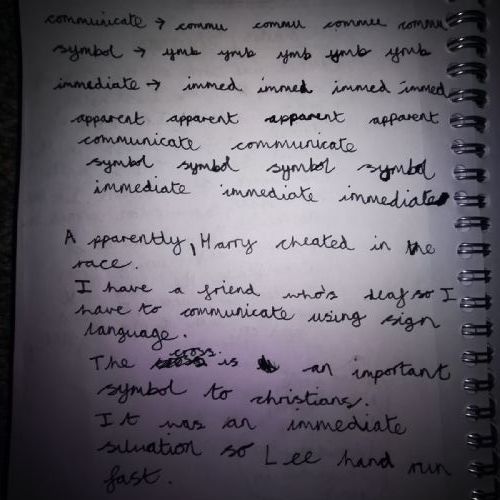 communicate → commu commu commu commu
symbol → ymb ymb ymb ymb ymb
immediate → immed immed immed immed
apparent apparent apparent apparent
communicate communicate
symbol symbol symbol symbol
immediate immediate immediate
Apparently, Harry cheated in the
race.
I have a friend who's deaf so I
have to communicate using sign
language.
The cross is an important
symbol to christians.
It was an immediate
situation so Lee hand run
fast.